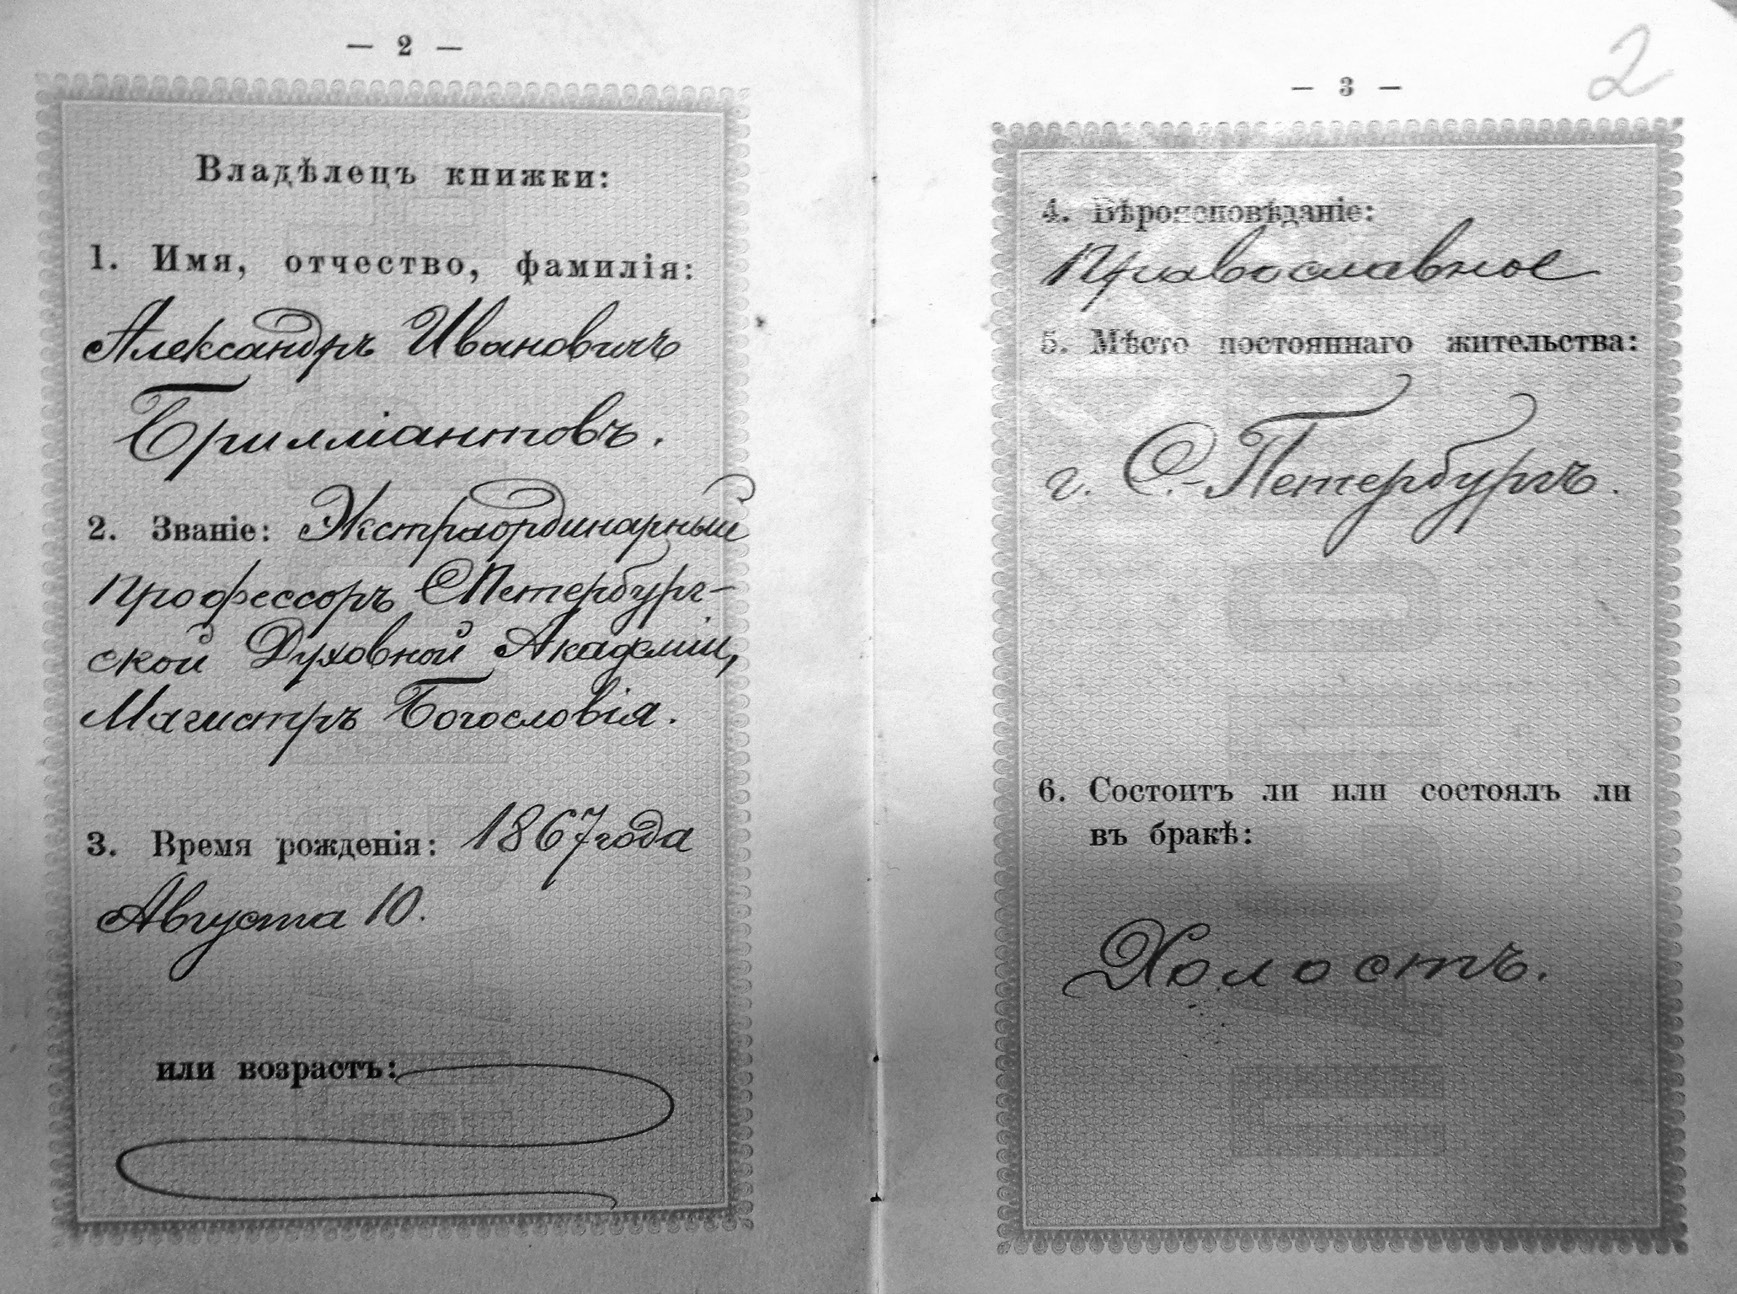 — 2 —
Владѣлецъ книжки:
1. Имя, отчество, фамилія:
Александръ Ивановичъ
Брилліантовъ.
2. Званіе: Экстраординарный
профессоръ СПетербург-
ской Духовной Академіи,
Магистръ Богословія.
3. Время рожденія: 1867 года
Августа 10.
или возрастъ:
2
— 3 —
4. Вѣроисповѣданіе:
Православное
5. Мѣсто постояннаго жительства:
г. С.-Петербургъ.
6. Состоитъ ли или состоялъ ли
въ бракѣ:
Холостъ.